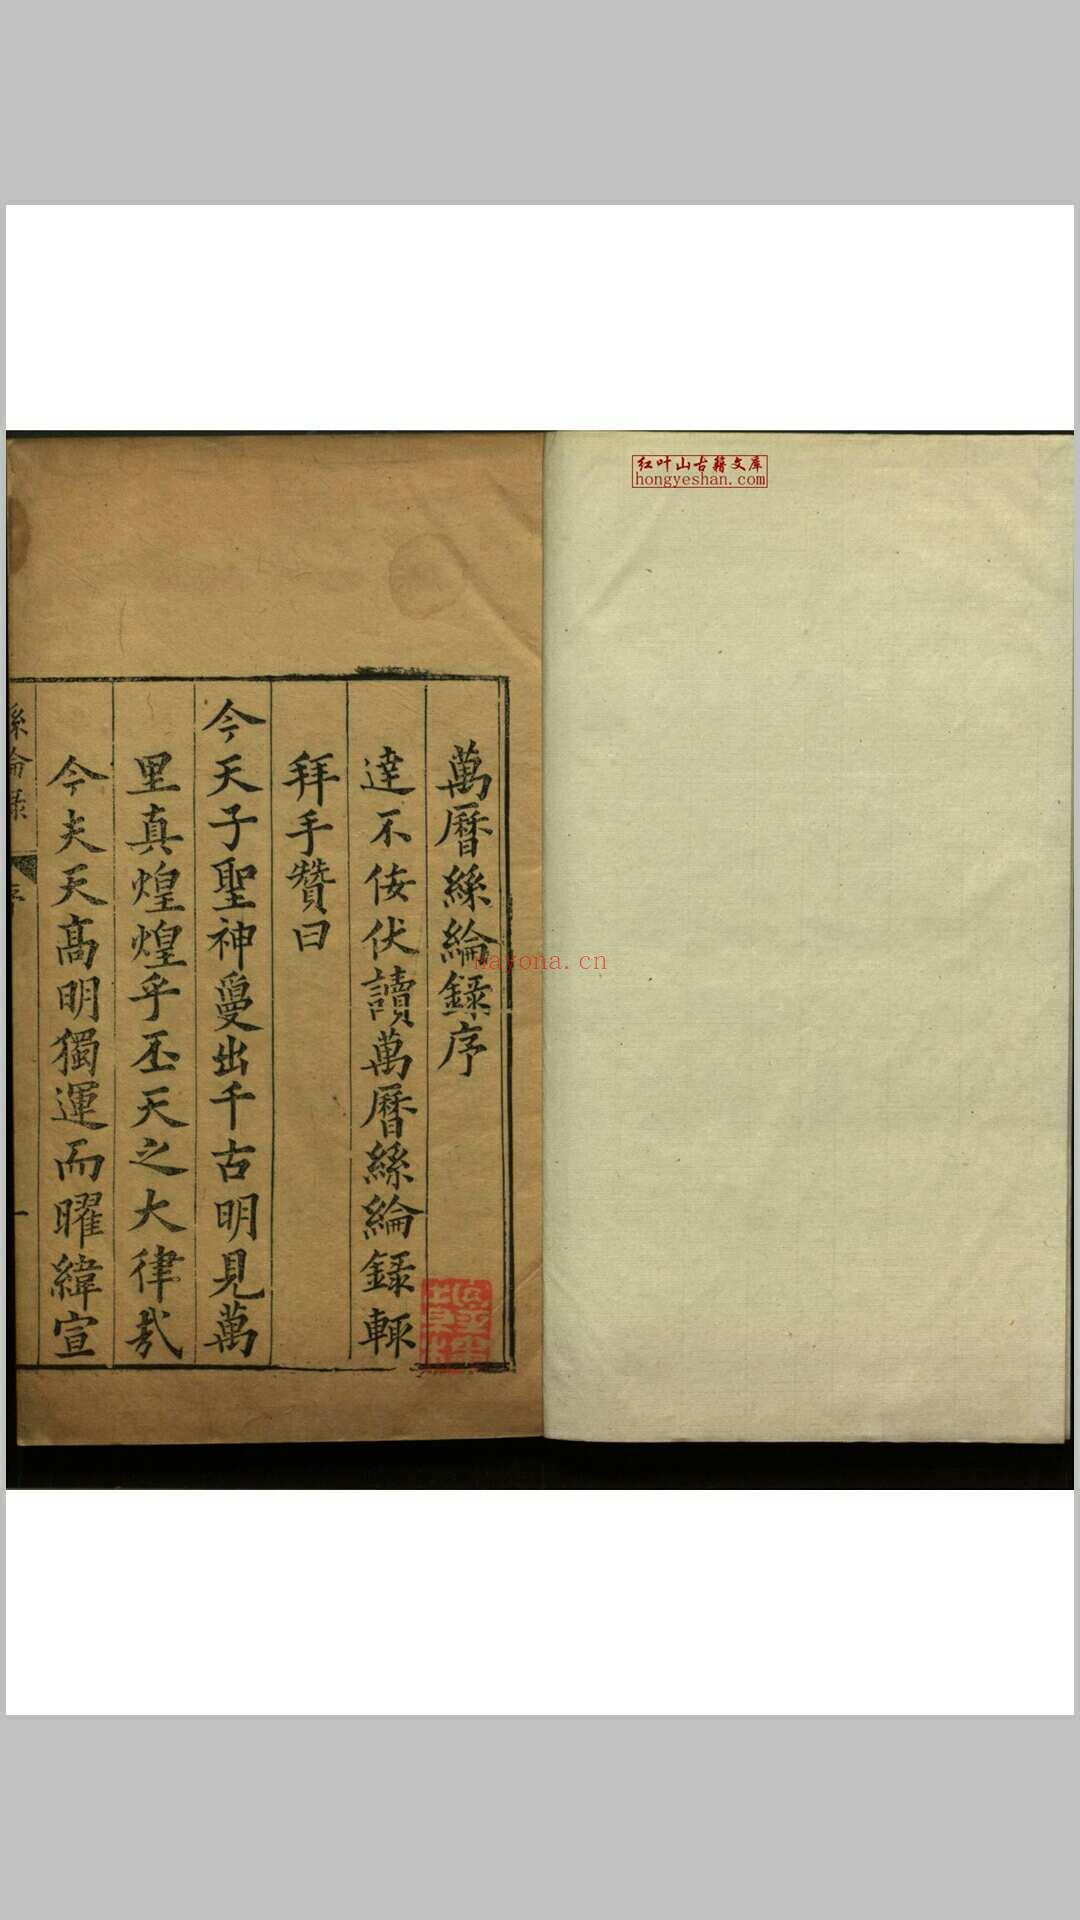 红叶山古籍文库
hongyeshan.com
萬曆絲綸錄序
達不佞伏讀萬曆絲綸錄輒
拜手贊曰
今天子聖神敻出千古明見萬
里真煌煌乎丕天之大律哉
今夫天高明獨運而曜緯宣
絲綸錄
序
一
nayona.cn